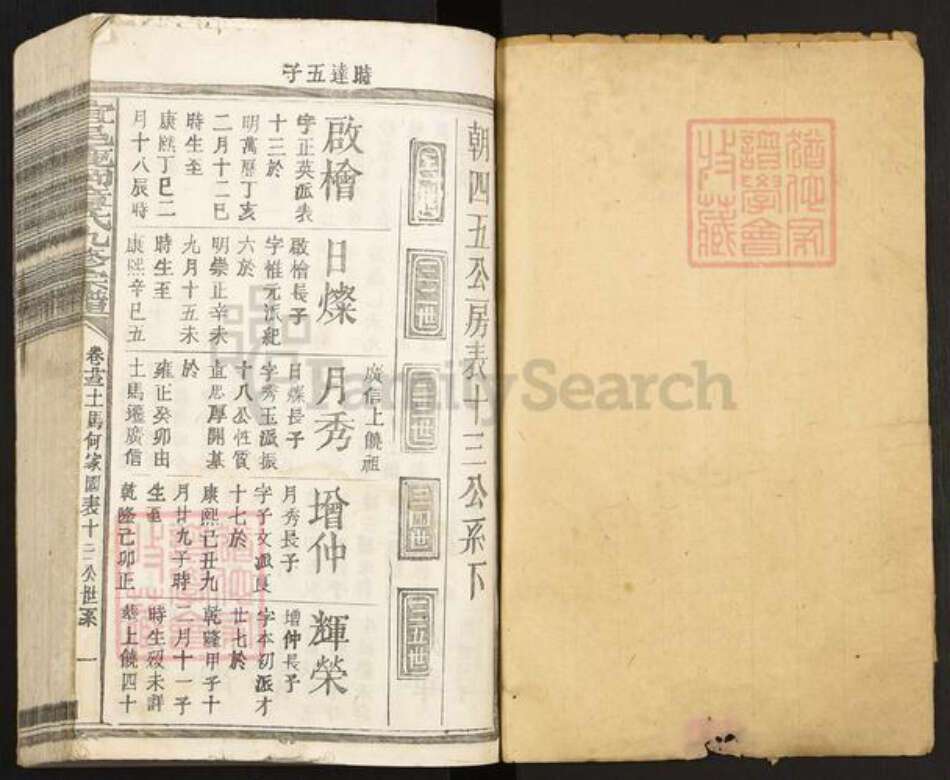 朝四五公房表十三公系下
三二世
三三世
三四世
三五世
時達五子
啟檜
字正英派表
十三於
明萬曆丁亥
二月十二巳
時生至
康熙丁巳二
月十八辰時
日燦
啟檜長子
字惟元派紀
六於
明崇正辛未
九月十五未
時生至
康熙辛巳五
廣信上饒祖
月秀
日燦長子
字秀玉派振
十八公性質
直思厚開基
於
雍正癸卯由
土馬遷廣信
增仲
月秀長子
字子文派夏
十七於
康熙己丑九
月廿九子時
生至
乾隆己卯正
輝榮
增仲長子
字本初派才
廿七於
乾隆甲子十
二月十一子
時生歿未詳
葬上饒四十
土馬何家園表十三公世系
一
譜學會
收藏
FamilySearch